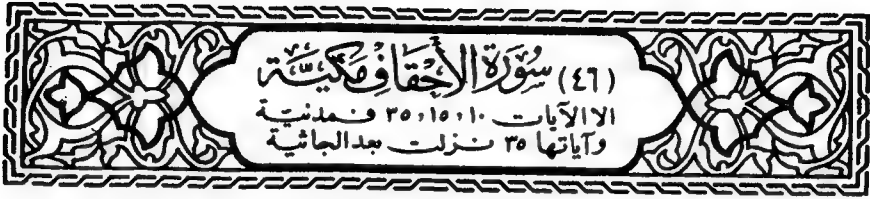 (٤٦) سُورَةُ الأَحْقَافِ مَكِّيَّة
إلا الآيات ١٠، ١٥، ٣٥ فمدنيّة
وآياتها ٣٥ نزلت بعد الجاثية